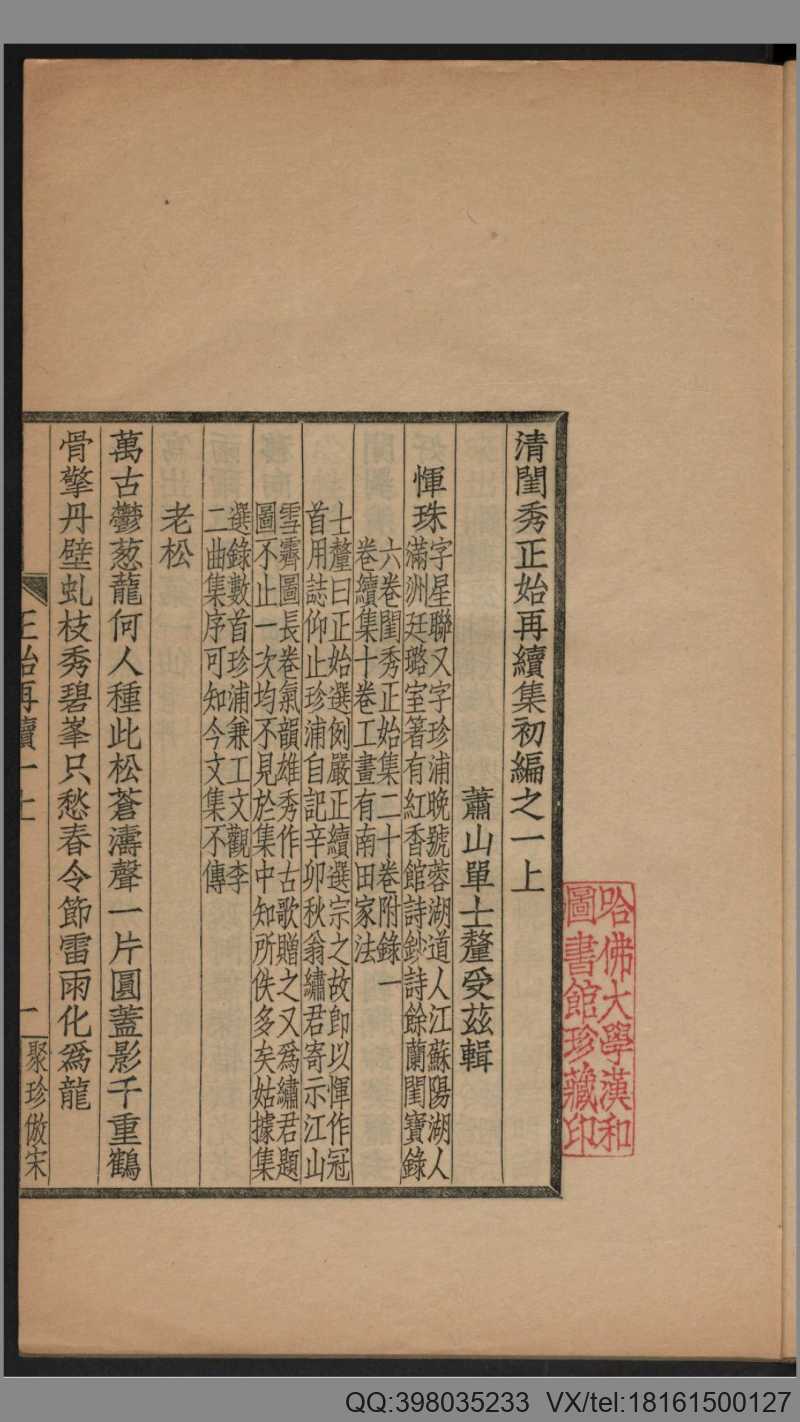 清閨秀正始再續集初編之一上
蕭山單士釐受茲輯
惲珠
字星聯又字珍浦晚號蓉湖道人江蘇陽湖人
滿洲廷璐室箸有紅香館詩鈔詩餘蘭閨寶錄
六卷閨秀正始集二十卷附錄一
卷續集十卷工畫有南田家法
士釐曰正始選例嚴正續選宗之故卽以惲作冠
首用誌仰止珍浦自記辛卯秋翁繡君寄示江山
雪霽圖長卷氣韻雄秀作古歌贈之又爲繡君題
圖不止一次均不見於集中知所佚多矣姑據集
選錄數首珍浦兼工文觀李
二曲集序可知今文集不傳
老松
萬古鬱葱蘢何人種此松蒼濤聲一片圓蓋影千重鶴
骨擎丹壁虬枝秀碧峯只愁春令節雷雨化爲龍
正始再續一上
一
聚珍倣宋
哈佛大學漢和
圖書館珍藏印
QQ:398035233 VX/tel:18161500127